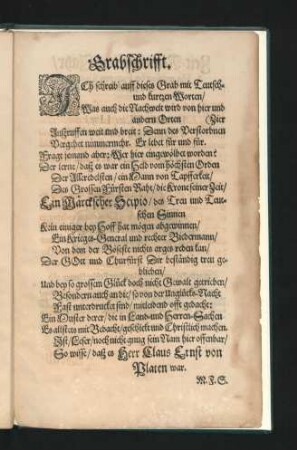 Grabschrifft.
ICh schreib auff dieses Grab mit Teutsch-
und kurtzen Worten/
Was auch die Nachwelt wird von hier und
andern Orten (Hier
Außruffen weit und breit: Denn des Verstorbnen
Vergisset nimmermehr. Er lebet für und für.
Fragt jemand aber: Wer hier eingewölbet worden?
Der lerne/ daß es war ein Held vom höchsten Orden
Der Alleredelsten/ ein Mann von Tapfferkeit/
Des Grossen Fürsten Raht/ die Krone seiner Zeit/
Ein Märckscher Scipio/ des Treu und Teu-
tschen Sinnen
Kein einiger bey Hoff hat mögen abgewinnen/
Ein Krieges-General und rechter Biedermann/
Von dem der Böseste nichts arges reden kan/
Der GOtt und Churfürst Der beständig treu ge-
blieben/
Und bey so grossem Glück doch nicht Gewalt getrieben/
Besondern auch an die/ so von der Unglücks-Nacht
Fast unterdruckt sind/ mitleidend offt gedacht;
Ein Muster derer/ die in Land-und Herren-Sachen
Es alles mit Bedacht/ geschickt und Christlich machen.
Ist/ Leser/ noch nicht gnug sein Nam hier offenbar/
So wisse/ daß es Herr Claus Ernst von
Platen war.
M.F.S.